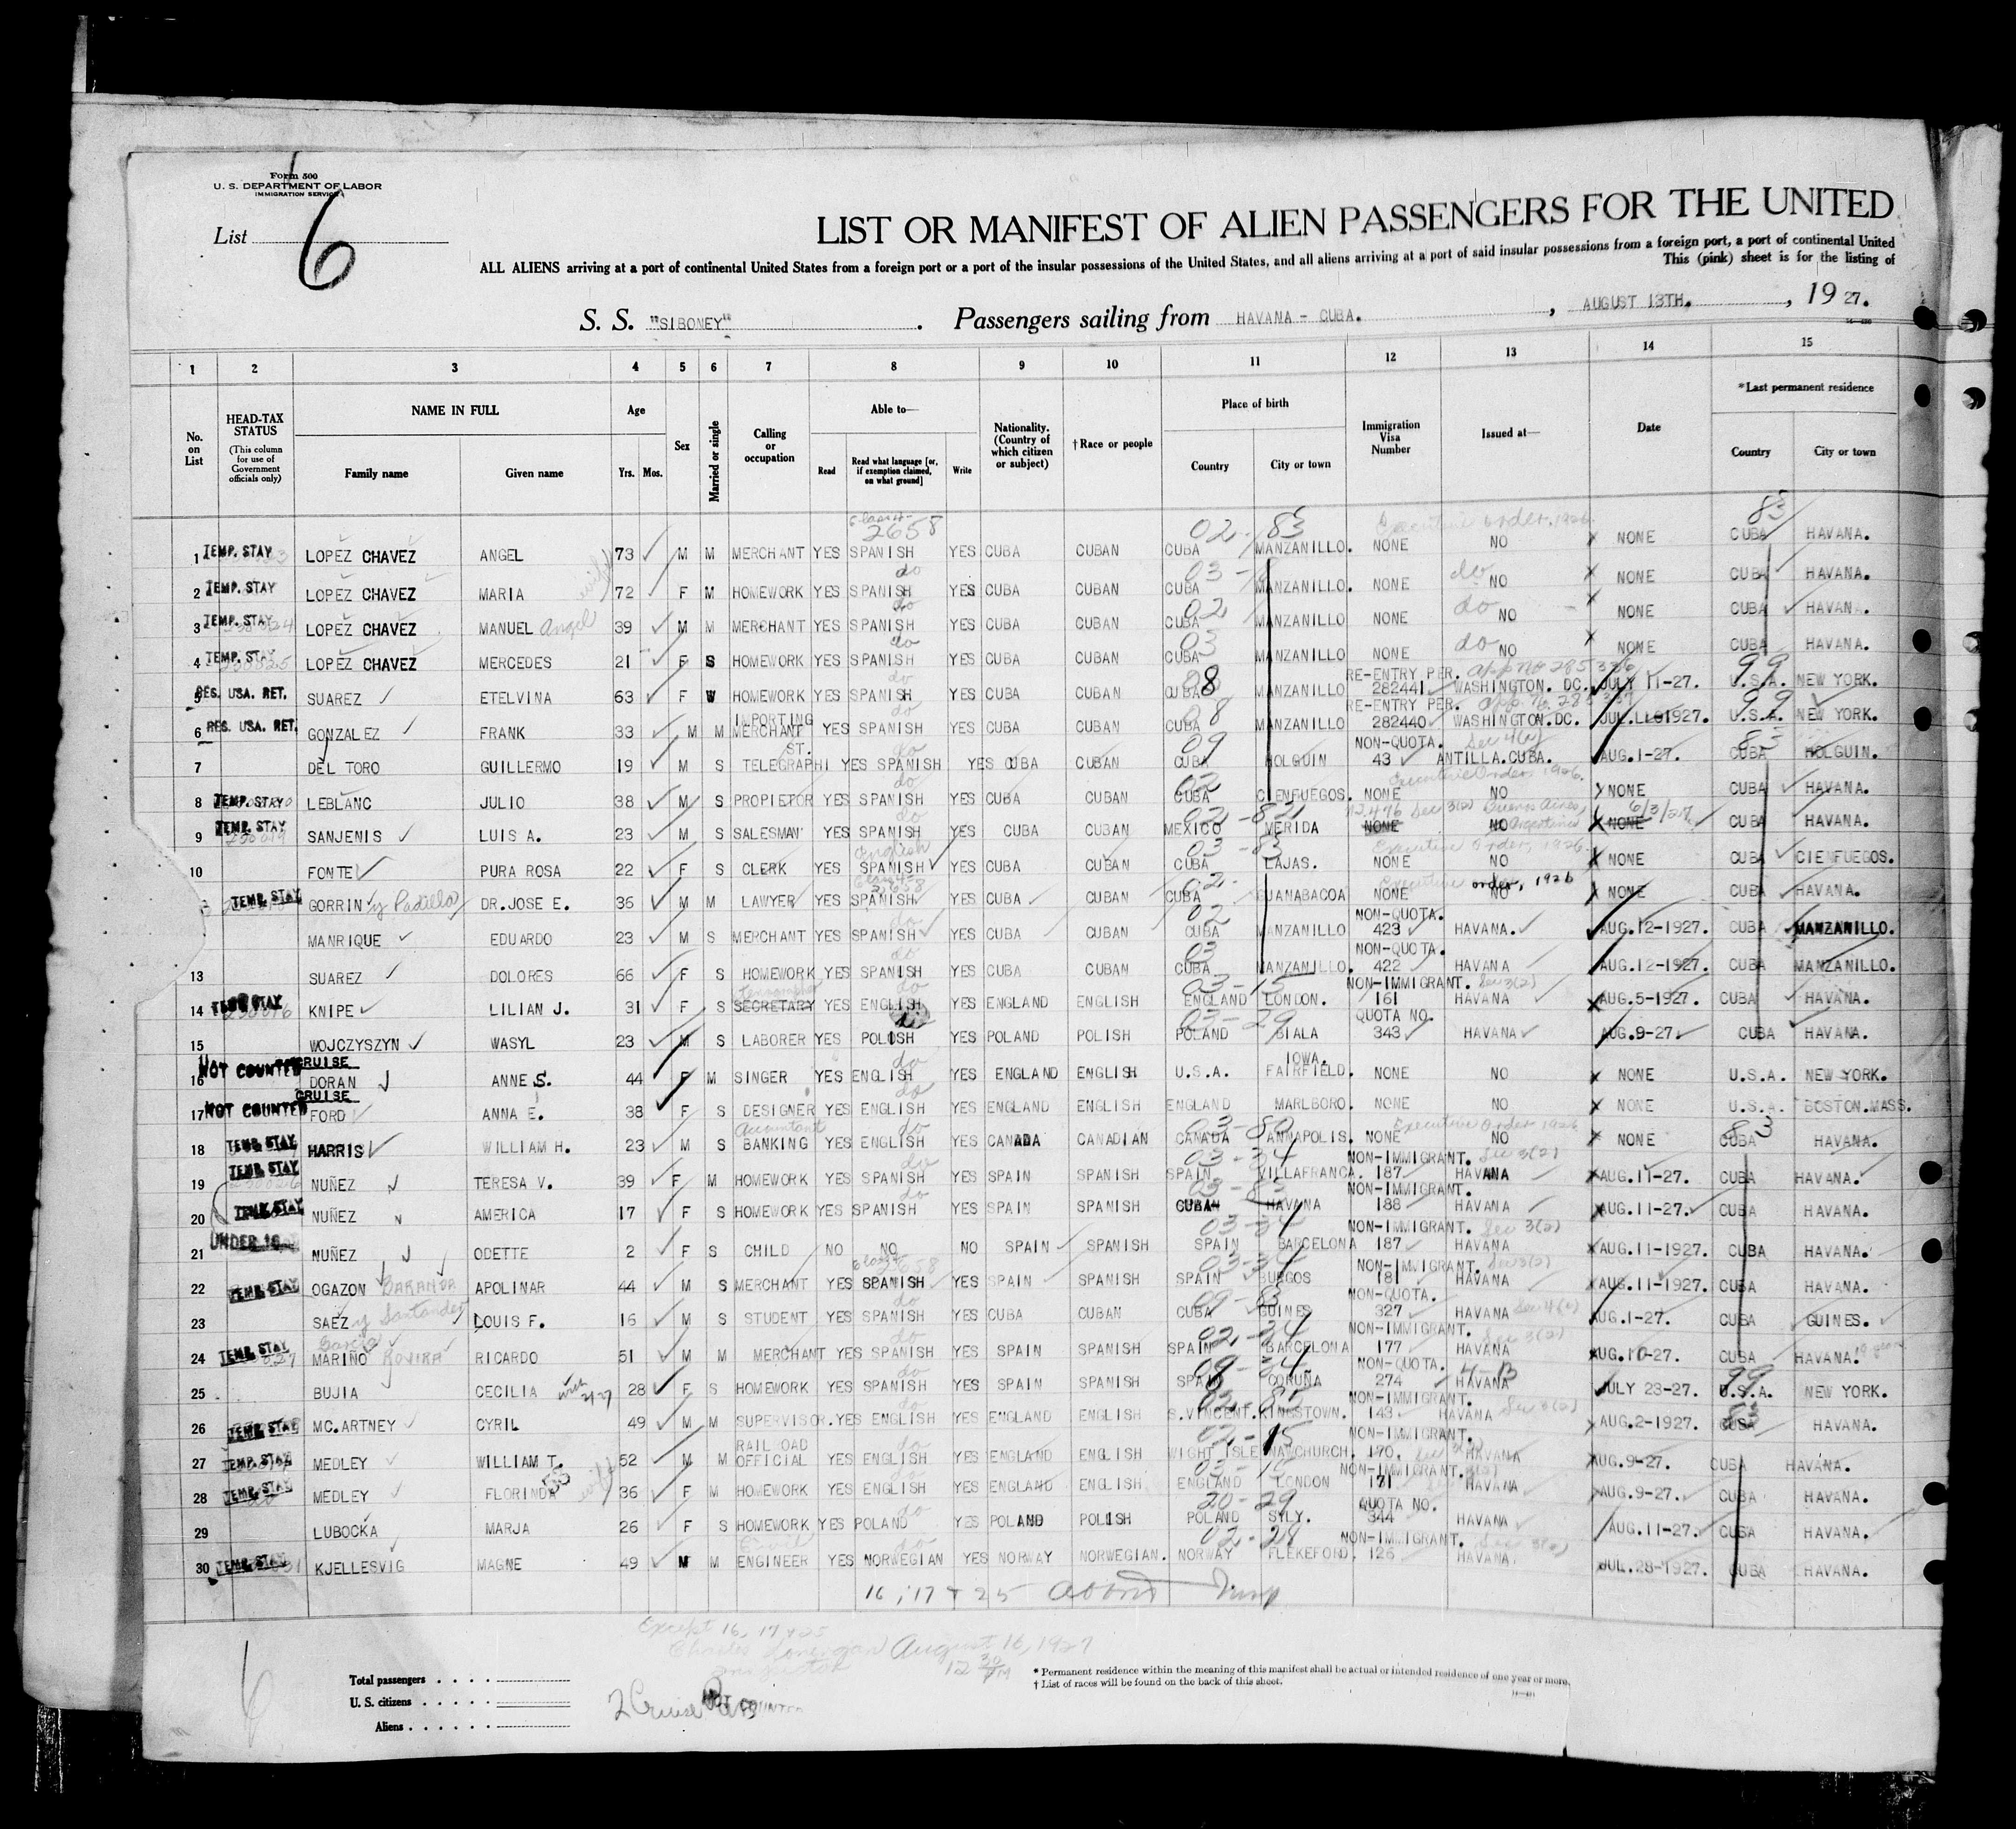 Form 500
U. S. DEPARTMENT OF LABOR
IMMIGRATION SERVICE
List 6
LIST OR MANIFEST OF ALIEN PASSENGERS FOR THE UNITED
ALL ALIENS arriving at a port of continental United States from a foreign port or a port of the insular possessions of the United States, and all aliens arriving at a port of said insular possessions from a foreign port, a port of continental United
This (pink) sheet is for the listing of
S. S. "SIBONEY". Passengers sailing from HAVANA - CUBA., AUGUST 13TH., 1927.
1 2 3 4 5 6 7 8 9 10 11 12 13 14 15
No. on List
HEAD-TAX STATUS (This column for use of Government officials only)
NAME IN FULL
Family name Given name
Age Yrs. Mos.
Sex
Married or single
Calling or occupation
Able to— Read Read what language [or, if exemption claimed, on what ground] Write
Nationality. (Country of which citizen or subject)
†Race or people
Place of birth Country City or town
Immigration Visa Number
Issued at—
Date
*Last permanent residence Country City or town
2658 02-83 Executive order, 1926 83
1 TEMP. STAY LOPEZ CHAVEZ ANGEL 73 M M MERCHANT YES SPANISH YES CUBA CUBAN CUBA MANZANILLO. NONE NO NONE CUBA HAVANA.
do 03 do
2 TEMP. STAY LOPEZ CHAVEZ MARIA wife 72 F M HOMEWORK YES SPANISH YES CUBA CUBAN CUBA MANZANILLO. NONE NO NONE CUBA HAVANA.
do 02 do
3 TEMP. STAY LOPEZ CHAVEZ MANUEL Angel 39 M M MERCHANT YES SPANISH YES CUBA CUBAN CUBA MANZANILLO NONE NO NONE CUBA HAVANA.
do 03 do
4 TEMP. STAY LOPEZ CHAVEZ MERCEDES 21 F S HOMEWORK YES SPANISH YES CUBA CUBAN CUBA MANZANILLO NONE NO NONE CUBA HAVANA.
do RE-ENTRY PER. 99
5 RES. USA. RET. SUAREZ ETELVINA 63 F W HOMEWORK YES SPANISH YES CUBA CUBAN CUBA 8 MANZANILLO 282441. WASHINGTON. DC. JULY 11-27. U.S.A. NEW YORK.
IMPORTING do 08 RE-ENTRY PER. 99
6 RES. USA. RET. GONZALEZ FRANK 33 M M MERCHANT YES SPANISH YES CUBA CUBAN CUBA MANZANILLO 282440 WASHINGTON.DC. 1927. U.S.A. NEW YORK.
ST. do 09 NON-QUOTA. Sec 4(a) 83
7 DEL TORO GUILLERMO 19 M S TELEGRAPHI YES SPANISH YES CUBA CUBAN CUBA HOLGUIN 43 ANTILLA.CUBA. AUG.1-27. CUBA HOLGUIN.
do 02 Executive Order, 1926.
8 TEMP. STAY LEBLANC JULIO 38 M S PROPIETOR YES SPANISH YES CUBA CUBAN CUBA CIENFUEGOS. NONE NO NONE CUBA HAVANA.
do 02-821 Sec 3(2) Buenos Aires, Argentina 6/3/27
9 TEMP. STAY SANJENIS LUIS A. 23 M S SALESMAN YES SPANISH YES CUBA CUBAN MEXICO MERIDA NONE NO NONE CUBA HAVANA.
English 03-83 Executive Order, 1926.
10 FONTE PURA ROSA 22 F S CLERK YES SPANISH YES CUBA CUBAN CUBA LAJAS. NONE NO NONE CUBA CIENFUEGOS.
2658 02- Executive order, 1926
TEMP. STAY GORRIN y Padillo DR.JOSE E. 36 M M LAWYER YES SPANISH YES CUBA CUBAN CUBA GUANABACOA NONE NO NONE CUBA HAVANA.
do 02 NON-QUOTA.
MANRIQUE EDUARDO 23 M S MERCHANT YES SPANISH YES CUBA CUBAN CUBA MANZANILLO 423 HAVANA. AUG.12-1927. CUBA MANZANILLO.
do 03 NON-QUOTA.
13 SUAREZ DOLORES 66 F S HOMEWORK YES SPANISH YES CUBA CUBAN CUBA MANZANILLO. 422 HAVANA AUG.12-1927. CUBA MANZANILLO.
do 03-15 NON-IMMIGRANT. Sec 3(2)
14 TEMP. STAY KNIPE LILIAN J. 31 F S SECRETARY YES ENGLISH YES ENGLAND ENGLISH ENGLAND LONDON. 161 HAVANA AUG.5-1927. CUBA HAVANA.
03-29 QUOTA NO.
15 WOJCZYSZYN WASYL 23 M S LABORER YES POLISH YES POLAND POLISH POLAND BIALA 343 HAVANA AUG.9-27. CUBA HAVANA.
CRUISE do IOWA.
16 NOT COUNTED DORAN ANNE S. 44 F M SINGER YES ENGLISH YES ENGLAND ENGLISH U.S.A. FAIRFIELD. NONE NO NONE U.S.A. NEW YORK.
CRUISE do
17 NOT COUNTED FORD ANNA E. 38 F S DESIGNER YES ENGLISH YES ENGLAND ENGLISH ENGLAND MARLBORO. NONE NO NONE U.S.A. BOSTON.MASS.
Accountant do 03-80 Executive Order 1926 83
18 TEMP. STAY HARRIS WILLIAM H. 23 M S BANKING YES ENGLISH YES CANADA CANADIAN CANADA ANNAPOLIS. NONE NO NONE CUBA HAVANA.
do 03-34 NON-IMMIGRANT. Sec 3(2)
19 TEMP. STAY NUÑEZ TERESA V. 39 F M HOMEWORK YES SPANISH YES SPAIN SPANISH SPAIN VILLAFRANCA. 187 HAVANA AUG.11-27. CUBA HAVANA.
do 03-83 NON-IMMIGRANT.
20 TEMP. STAY NUÑEZ AMERICA 17 F S HOMEWORK YES SPANISH YES SPAIN SPANISH CUBAN HAVANA 188 HAVANA AUG.11-27. CUBA HAVANA.
03-34 NON-IMMIGRANT. Sec 3(2)
21 UNDER 16 NUÑEZ ODETTE 2 F S CHILD NO NO NO SPAIN SPANISH SPAIN BARCELONA 187 HAVANA AUG.11-1927. CUBA HAVANA.
2658 03-34 NON-IMMIGRANT. Sec 3(2)
22 TEMP. STAY OGAZON BARANDA APOLINAR 44 M S MERCHANT YES SPANISH YES SPAIN SPANISH SPAIN BURGOS 181 HAVANA AUG.11-1927. CUBA HAVANA.
do 09-83 NON-QUOTA.
23 SAEZ y Santander LOUIS F. 16 M S STUDENT YES SPANISH YES CUBA CUBAN CUBA GUINES 327 HAVANA AUG.1-27. CUBA GUINES.
Garcia do 02-34 NON-IMMIGRANT. Sec 3(2)
24 TEMP. STAY MARIÑO ROVIRA RICARDO 51 M M MERCHANT YES SPANISH YES SPAIN SPANISH SPAIN BARCELONA 177 HAVANA AUG.10-27. CUBA HAVANA.
do 09-34 NON-QUOTA. 99
25 BUJIA CECILIA 28 F S HOMEWORK YES SPANISH YES SPAIN SPANISH SPAIN CORUÑA 274 HAVANA JULY 23-27. U.S.A. NEW YORK.
do NON-IMMIGRANT. Sec 3(2) 83
26 TEMP. STAY MC.ARTNEY CYRIL 49 M M SUPERVISOR. YES ENGLISH YES ENGLAND ENGLISH S.VINCENT. KINGSTOWN. 143 HAVANA AUG.2-1927. CUBA HAVANA.
RAILROAD do 02-15 NON-IMMIGRANT.
27 TEMP. STAY MEDLEY WILLIAM T. 52 M M OFFICIAL YES ENGLISH YES ENGLAND ENGLISH WIGHT ISLE NEWCHURCH. 170. HAVANA AUG.9-27. CUBA HAVANA.
do 03-15 NON-IMMIGRANT.
28 TEMP. STAY MEDLEY FLORINDA wife 36 F M HOMEWORK YES ENGLISH YES ENGLAND ENGLISH ENGLAND LONDON 171 HAVANA AUG.9-27. CUBA HAVANA.
do 20-29 QUOTA NO.
29 LUBOCKA MARJA 26 F S HOMEWORK YES POLAND YES POLAND POLISH POLAND SYLY. 344 HAVANA AUG.11-27. CUBA HAVANA.
Civil do 02-28 NON-IMMIGRANT. Sec 3(2)
30 TEMP. STAY KJELLESVIG MAGNE 49 M M ENGINEER YES NORWEGIAN YES NORWAY NORWEGIAN. NORWAY FLEKEFORD. 126 HAVANA. JUL.28-1927. CUBA HAVANA.
16, 17 + 25
Except 16, 17 + 25
Charles Lonergan August 16, 1927
Inspector 12 30 PM
6
Total passengers
U. S. citizens
Aliens
2 Cruise NOT COUNTED
* Permanent residence within the meaning of this manifest shall be actual or intended residence of one year or more.
† List of races will be found on the back of this sheet.